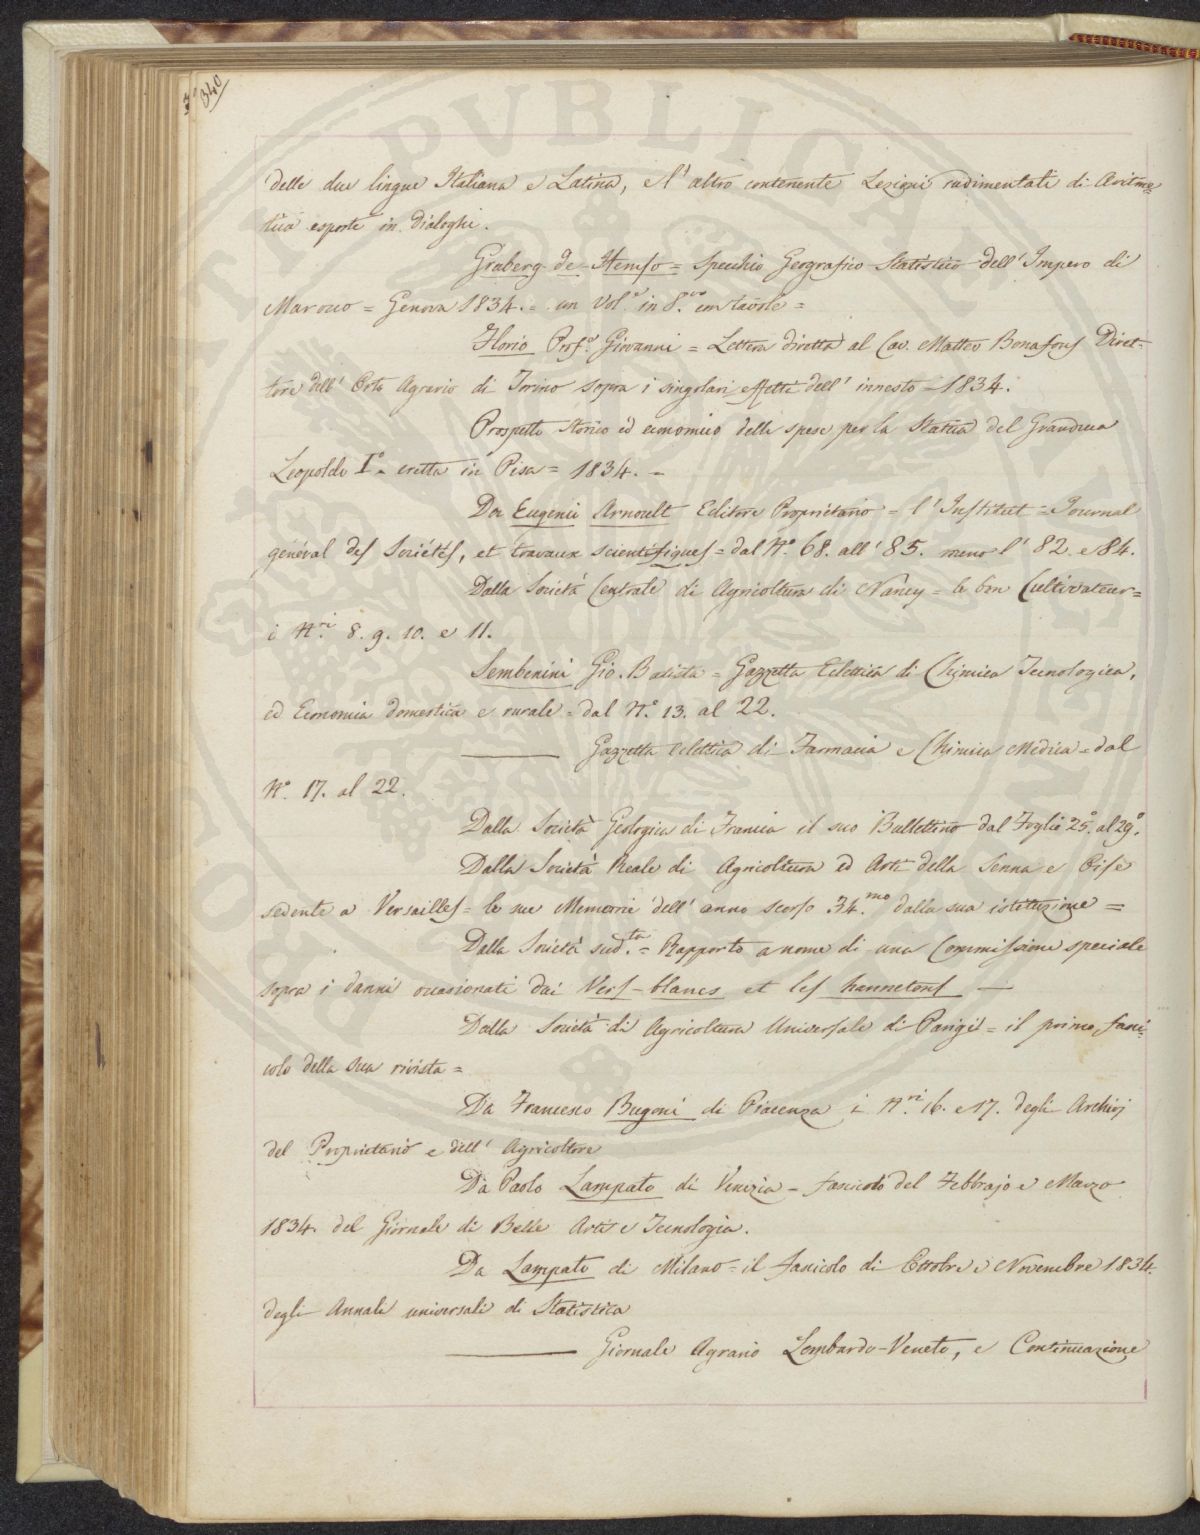 340
delle due lingue Italiana e Latina, e l'altro contenente Lezioni rudimentali di Aritme=
tica esposte in dialoghi.
Graberg de Hemso = Specchio Geografico Statistico dell'Impero di
Marocco = Genova 1834. = un Vol.e in 8.vo con tavole =
Florio Prof.e Giovanni = Lettera diretta al Cav. Matteo Bonafous Diret-
tore dell'Orto Agrario di Torino sopra i singolari effetti dell'innesto = 1834.
Prospetto storico ed economico delle spese per la Statua del Granduca
Leopoldo I.o eretta in Pisa = 1834. =
Da Eugenii Arnoult Editore Proprietario = l'Institut = Journal
général des Sociétés, et travaux scientifiques = dal N.o 68. all'85. meno l'82. e 84.
Dalla Società Centrale di Agricoltura di Nancy = le bon Cultivateur =
i N.ri 8. 9. 10. e 11.
Sembenini Gio. Batista = Gazzetta Eclettica di Chimica Tecnologica,
ed Economia domestica e rurale = dal N.o 13. al 22.
——— Gazzetta Eclettica di Farmacia e Chimica Medica = dal
N.o 17. al 22.
Dalla Società Geologica di Francia il suo Bullettino dal Foglio 25.o al 29.o
Dalla Società Reale di Agricoltura ed Arti della Senna e Oise
sedente a Versailles = le sue Memorie dell'anno scorso 34.mo dalla sua istituzione =
Dalla Società sud.ta = Rapporto a nome di una Commissione speciale
sopra i danni occasionati dai Vers-blancs et les hannetons —
Dalla Società di Agricoltura Universale di Parigi = il primo fasci=
colo della sua rivista =
Da Francesco Bugoni di Piacenza i N.ri 16. e 17. degli Archivj
del Proprietario e dell'Agricoltore
Da Paolo Lampato di Venezia = fascicoli del Febbrajo e Marzo
1834. del Giornale di Belle Arti e Tecnologia.
Da Lampato di Milano = il fascicolo di Ottobre e Novembre 1834.
degli Annali universali di Statistica
——— Giornale Agrario Lombardo-Veneto, e Continuazione